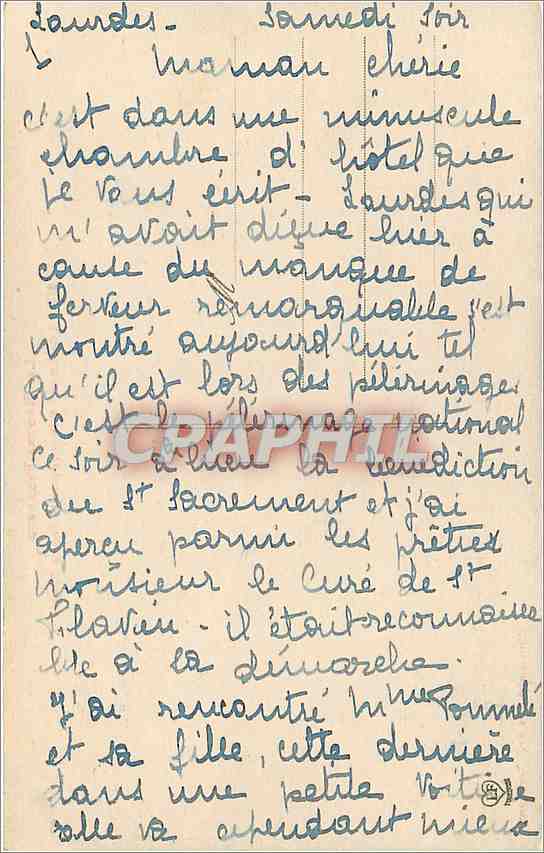 Lourdes - Samedi Soir
Maman chérie
c'est dans une minuscule
chambre d'hôtel que
je vous écrit - Lourdes qui
m'avait déçue hier à
cause du manque de
ferveur remarquable s'est
montré aujourd'hui tel
qu'il est lors des pélérinages
c'est le pélérinage national
CPARHIL
ce soir à lieu la bénédiction
du St Sacrement et j'ai
aperçu parmi les prêtres
monsieur le Curé de St
Flavien - il était reconnaissa
ble à sa démarche.
J'ai rencontré Mme
et sa fille, cette dernière
dans une petite voiture
elle va cependant mieux